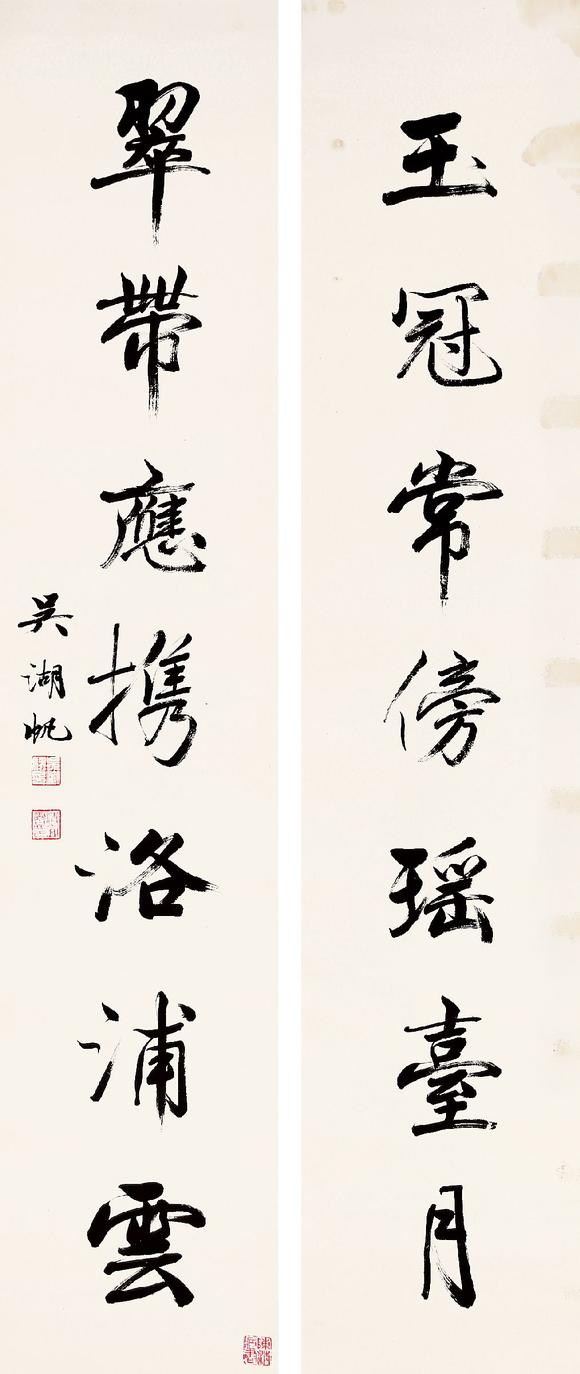 玉冠常傍瑶臺月
翠帶應携洛浦雲
吴湖帆